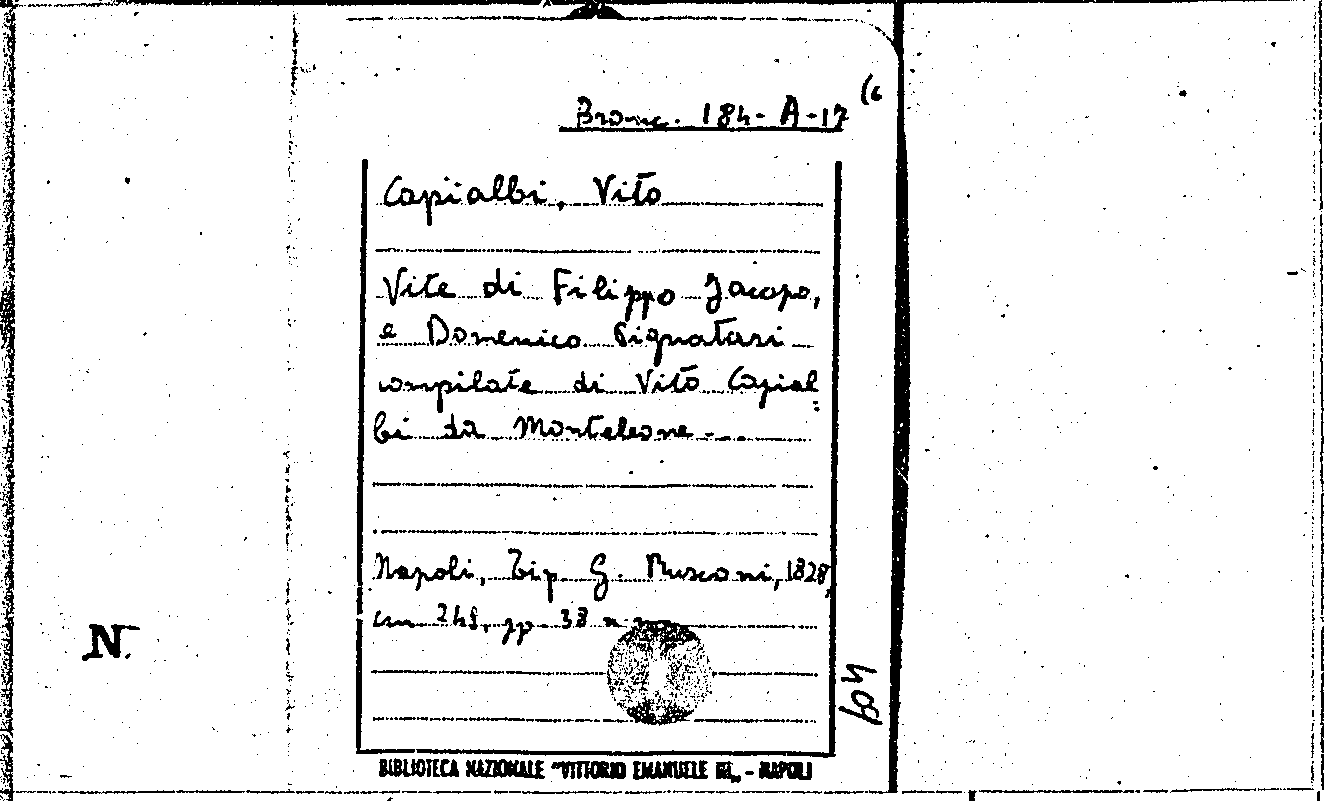 (6
Branc. 184-A-17
Capialbi, Vito
Vite di Filippo Jacopo,
e Domenico Pignatari
compilate di Vito Capial=
bi da Monteleone...
Napoli, Tip. G. Rusconi, 1828,
cm 24½, pp. 38 n
N
BIBLIOTECA NAZIONALE "VITTORIO EMANUELE III„ - NAPOLI